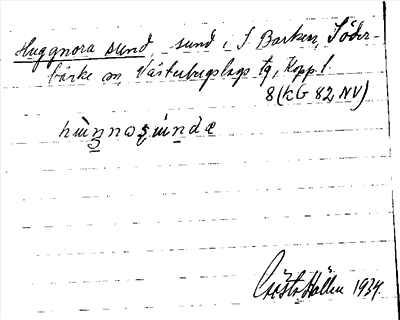 Huggnora sund, sund i S Barken, Söder-
bärke sn, Västerbergslags tg, Kopp. l.
8 (KG 82 NV)
Gösta Hallen 1934.